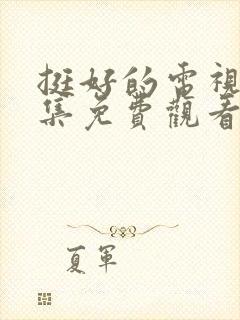 挺好的電視
集免費觀看
夏軍